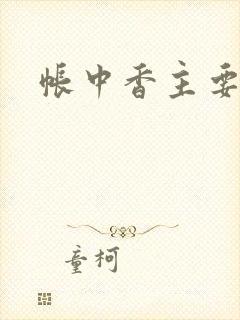 帐中香主要
童柯